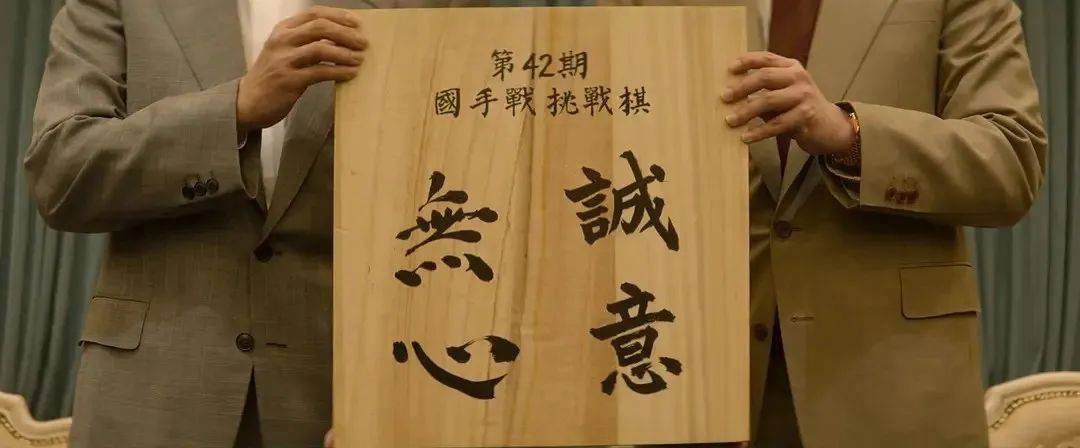 第42期
國手戰 挑戰棋
誠意
無心